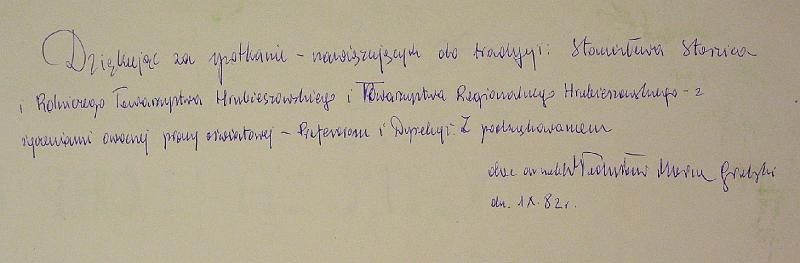 Dziękując za spotkanie - nawiązujących do tradycji: Stanisława Staszica
i Rolniczego Towarzystwa Hrubieszowskiego i Towarzystwa Regionalnego Hrubieszowskiego - z
życzeniami owocnej pracy oświatowej - Profesorom i Dyrekcji. Z podziękowaniem
Władysław Maria Grabski
dn. 1 X. 82 r.